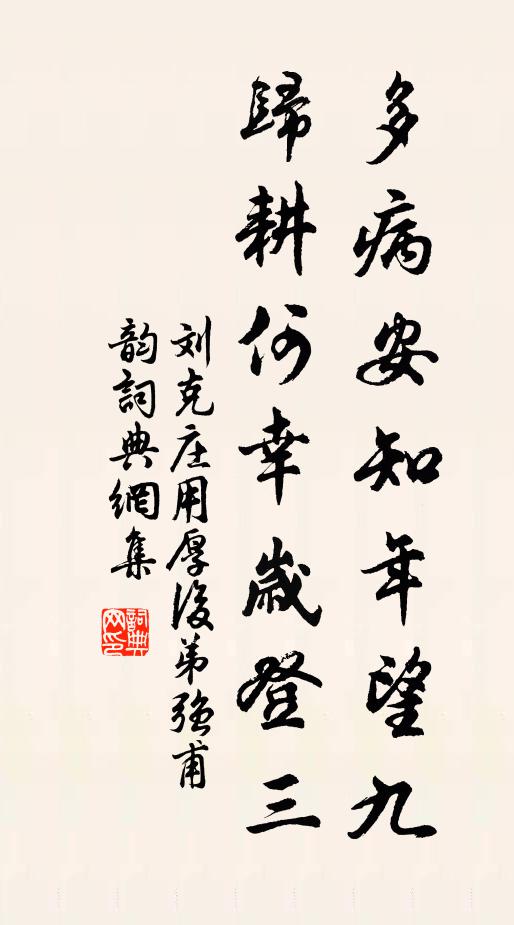 多病安知年望九
歸耕何幸歲登三
刘克庄用厚後弟強甫
韵詞典網集
詞典網印